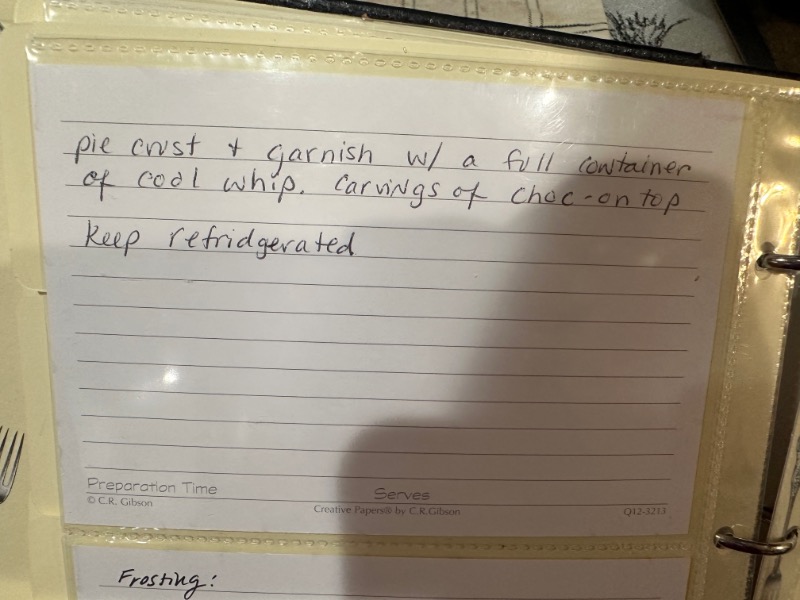 pie crust + garnish w/ a full container
of cool whip. Carvings of choc - on top
keep refridgerated
Preparation Time
Serves
© C.R. Gibson
Creative Papers® by C.R.Gibson
Q12-3213
Frosting: